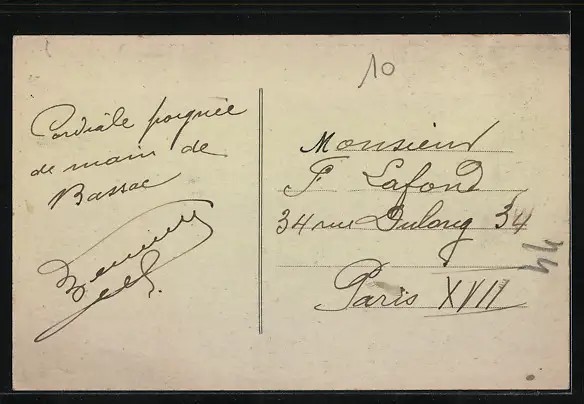 Cordiale poignée
de main de
Bassac
10
Monsieur
F Lafond
34 rue Dulong 34
Paris XVII